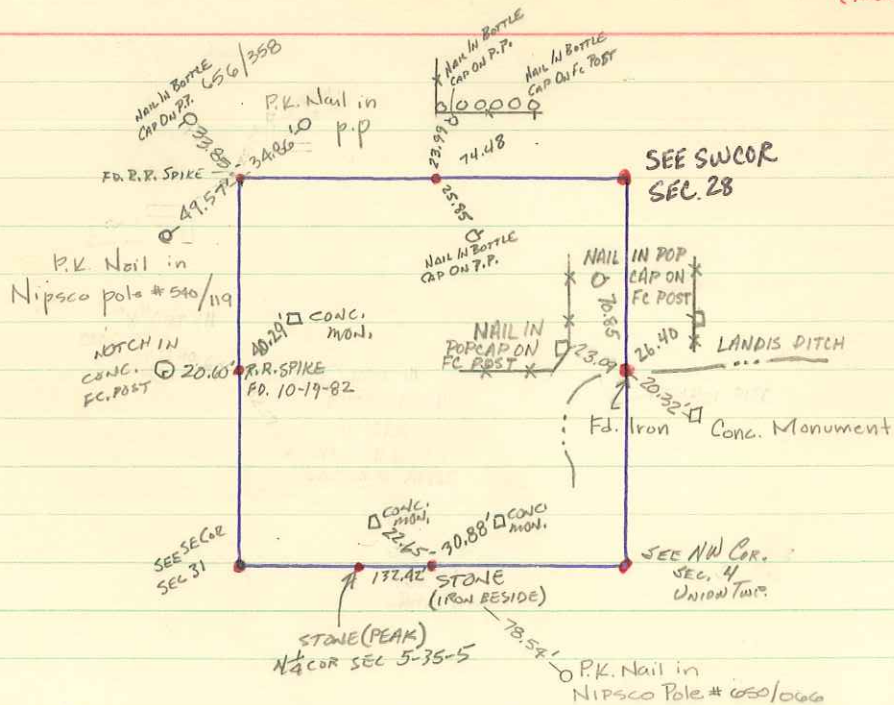 NAIL IN BOTTLE
CAP ON P.P. 656/358
33.85'
34.86'
P.K. Nail in
p.p
FD. R.R. SPIKE
49.57'
P.K. Nail in
Nipsco pole # 540/119
NAIL IN BOTTLE
CAP ON P.P.
NAIL IN BOTTLE
CAP ON FC POST
23.99
74.48
25.85
NAIL IN BOTTLE
CAP ON P.P.
SEE SWCOR
SEC. 28
NAIL IN POP
CAP ON
FC POST
70.85
NAIL IN
POPCAP ON
FC POST
23.09
26.40
LANDIS DITCH
20.32'
Fd. Iron
Conc. Monument
40.29'
CONC.
MON.
NOTCH IN
CONC.
FC. POST
20.60'
R.R. SPIKE
FD. 10-19-82
SEE SE COR
SEC 31
CONC.
MON.
22.65
30.88'
CONC.
MON.
132.42'
STONE
(IRON BESIDE)
STONE (PEAK)
N 1/4 COR SEC 5-35-5
78.54'
P.K. Nail in
NIPSCO Pole # 650/066
SEE NW COR.
SEC. 4
UNION TWP.